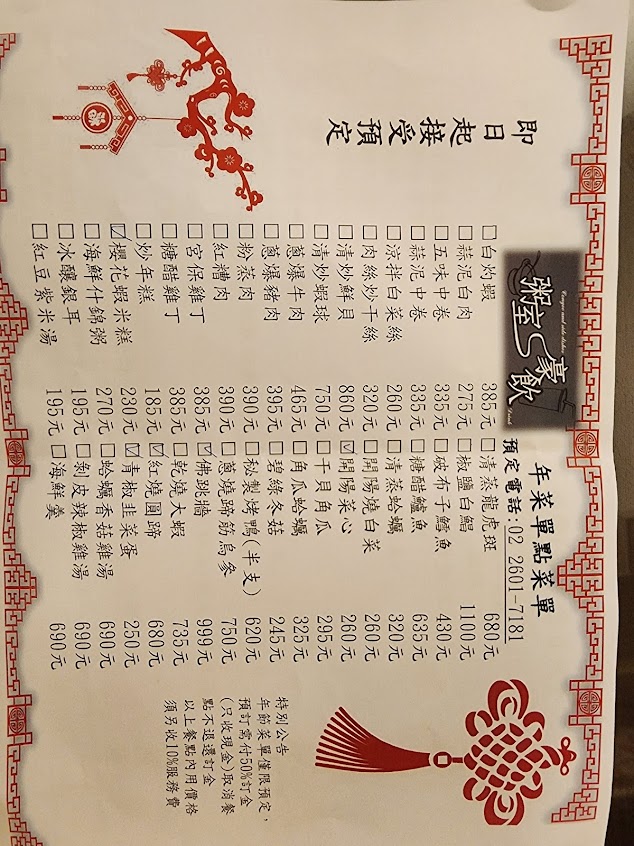 即日起接受預定
粥室ㄟ豪飲
Congee and side dishes
Drink
年菜單點菜單
預定電話:02 2601-7181
□白灼蝦 385元 □清蒸龍虎斑 680元
□蒜泥白肉 275元 □椒鹽白鯧 1100元
□五味中卷 335元 □破布子鱈魚 430元
□蒜泥中卷 335元 □糖醋鱸魚 635元
□涼拌白菜絲 260元 □清蒸蛤蠣 320元
□肉絲炒干絲 320元 □開陽燒白菜 260元
□清炒鮮貝 860元 ☑開陽菜心 260元
□清炒蝦球 750元 □干貝角瓜 295元
□蔥爆牛肉 465元 □角瓜蛤蠣 325元
□蔥爆豬肉 395元 □碧綠冬菇 245元
□粉蒸肉 390元 □秘製烤鴨(半支) 620元
□紅糟肉 390元 □蔥燒蹄筋烏參 750元
□宮保雞丁 385元 ☑佛跳牆 999元
□糖醋雞丁 385元 □乾燒大蝦 735元
□炒年糕 185元 ☑紅燒圓蹄 680元
☑櫻花蝦米糕 230元 ☑青椒韭菜蛋 250元
□海鮮什錦粥 270元 □蛤蠣香菇雞湯 690元
□冰釀銀耳 195元 □剝皮辣椒雞湯 690元
□紅豆紫米湯 195元 □海鮮羹 690元
特別公告
年節菜單僅限預定,
預訂需付50%訂金
(只收現金)取消餐
點不退還訂金
以上餐點內用價格
須另收10%服務費